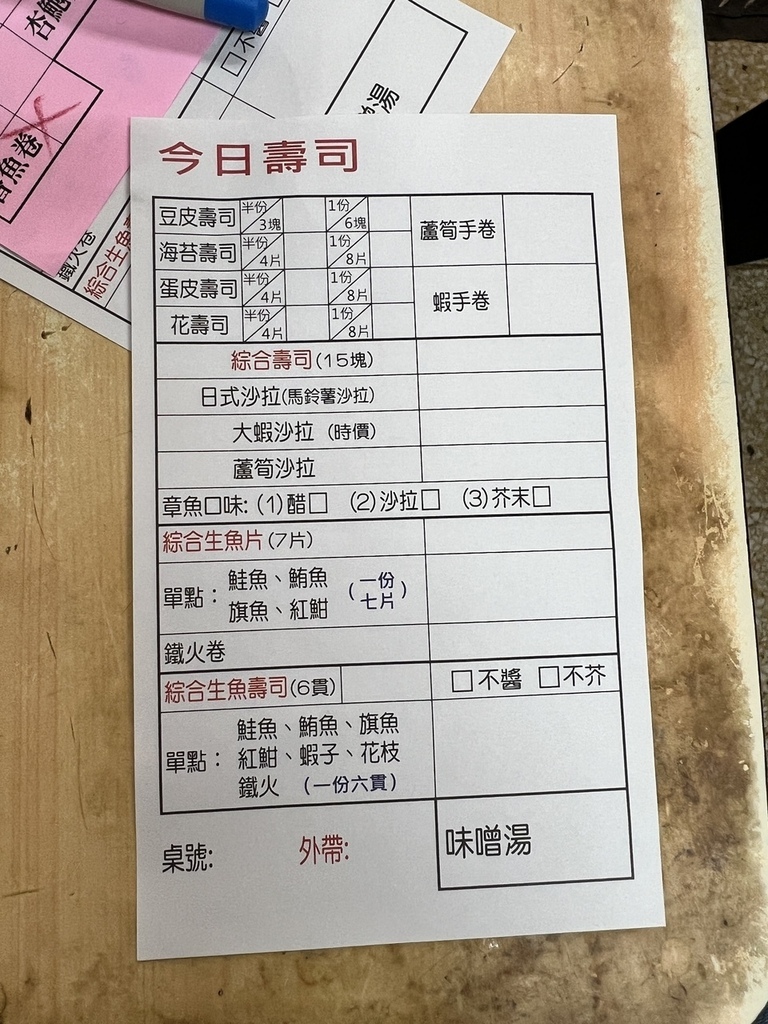 不醬
魚卷
鐵火卷
綜合生魚
湯
今日壽司
豆皮壽司 半份/3塊 1份/6塊
蘆筍手卷
海苔壽司 半份/4片 1份/8片
蛋皮壽司 半份/4片 1份/8片
蝦手卷
花壽司 半份/4片 1份/8片
綜合壽司(15塊)
日式沙拉(馬鈴薯沙拉)
大蝦沙拉 (時價)
蘆筍沙拉
章魚口味: (1)醋□ (2)沙拉□ (3)芥末□
綜合生魚片(7片)
單點: 鮭魚、鮪魚 (一份
旗魚、紅魽 七片)
鐵火卷
綜合生魚壽司(6貫) □不醬 □不芥
鮭魚、鮪魚、旗魚
單點: 紅魽、蝦子、花枝
鐵火 (一份六貫)
味噌湯
桌號: 外帶: